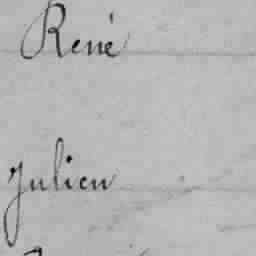 René
Julien